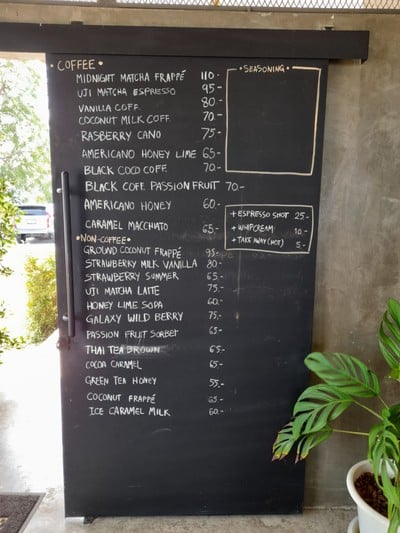 • COFFEE •
MIDNIGHT MATCHA FRAPPÉ 110-
UJI MATCHA ESPRESSO 95-
VANILLA COFF. 80-
COCONUT MILK COFF. 70-
RASBERRY CANO 75-
AMERICANO HONEY LIME 65-
BLACK COCO COFF. 70-
BLACK COFF. PASSION FRUIT 70-
AMERICANO HONEY 60-
CARAMEL MACCHIATO 65-
• NON-COFFEE •
GROUND COCONUT FRAPPÉ 95-
STRAWBERRY MILK VANILLA 80-
STRAWBERRY SUMMER 65-
UJI MATCHA LATTE 75-
HONEY LIME SODA 60-
GALAXY WILD BERRY 75-
PASSION FRUIT SORBET 65-
THAI TEA BROWN 65-
COCOA CARAMEL 65-
GREEN TEA HONEY 55-
COCONUT FRAPPÉ 65-
ICE CARAMEL MILK 60-
• SEASONING •
+ ESPRESSO SHOT 25-
+ WHIPCREAM 10-
+ TAKE AWAY (HOT) 5-